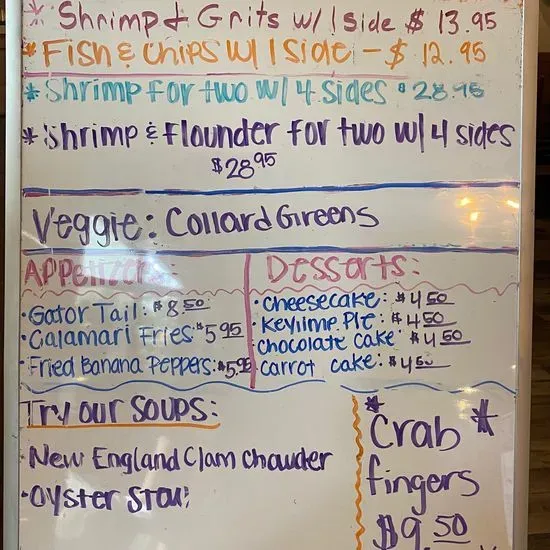 * Shrimp & Grits w/ 1 side $ 13.95
* Fish & Chips w/ 1 side - $ 12.95
* Shrimp for two w/ 4 sides $28.95
* Shrimp & Flounder for two w/ 4 sides
$28.95
Veggie: Collard Greens
Appetizers:
• Gator Tail: $8.50
• Calamari Fries: $5.95
• Fried Banana Peppers: $5.95
Desserts:
• Cheesecake: $4.50
• Keylime Pie: $4.50
chocolate cake $4.50
carrot cake: $4.50
Try our soups:
• New England Clam Chowder
• Oyster Stew
* Crab *
fingers
$9.50